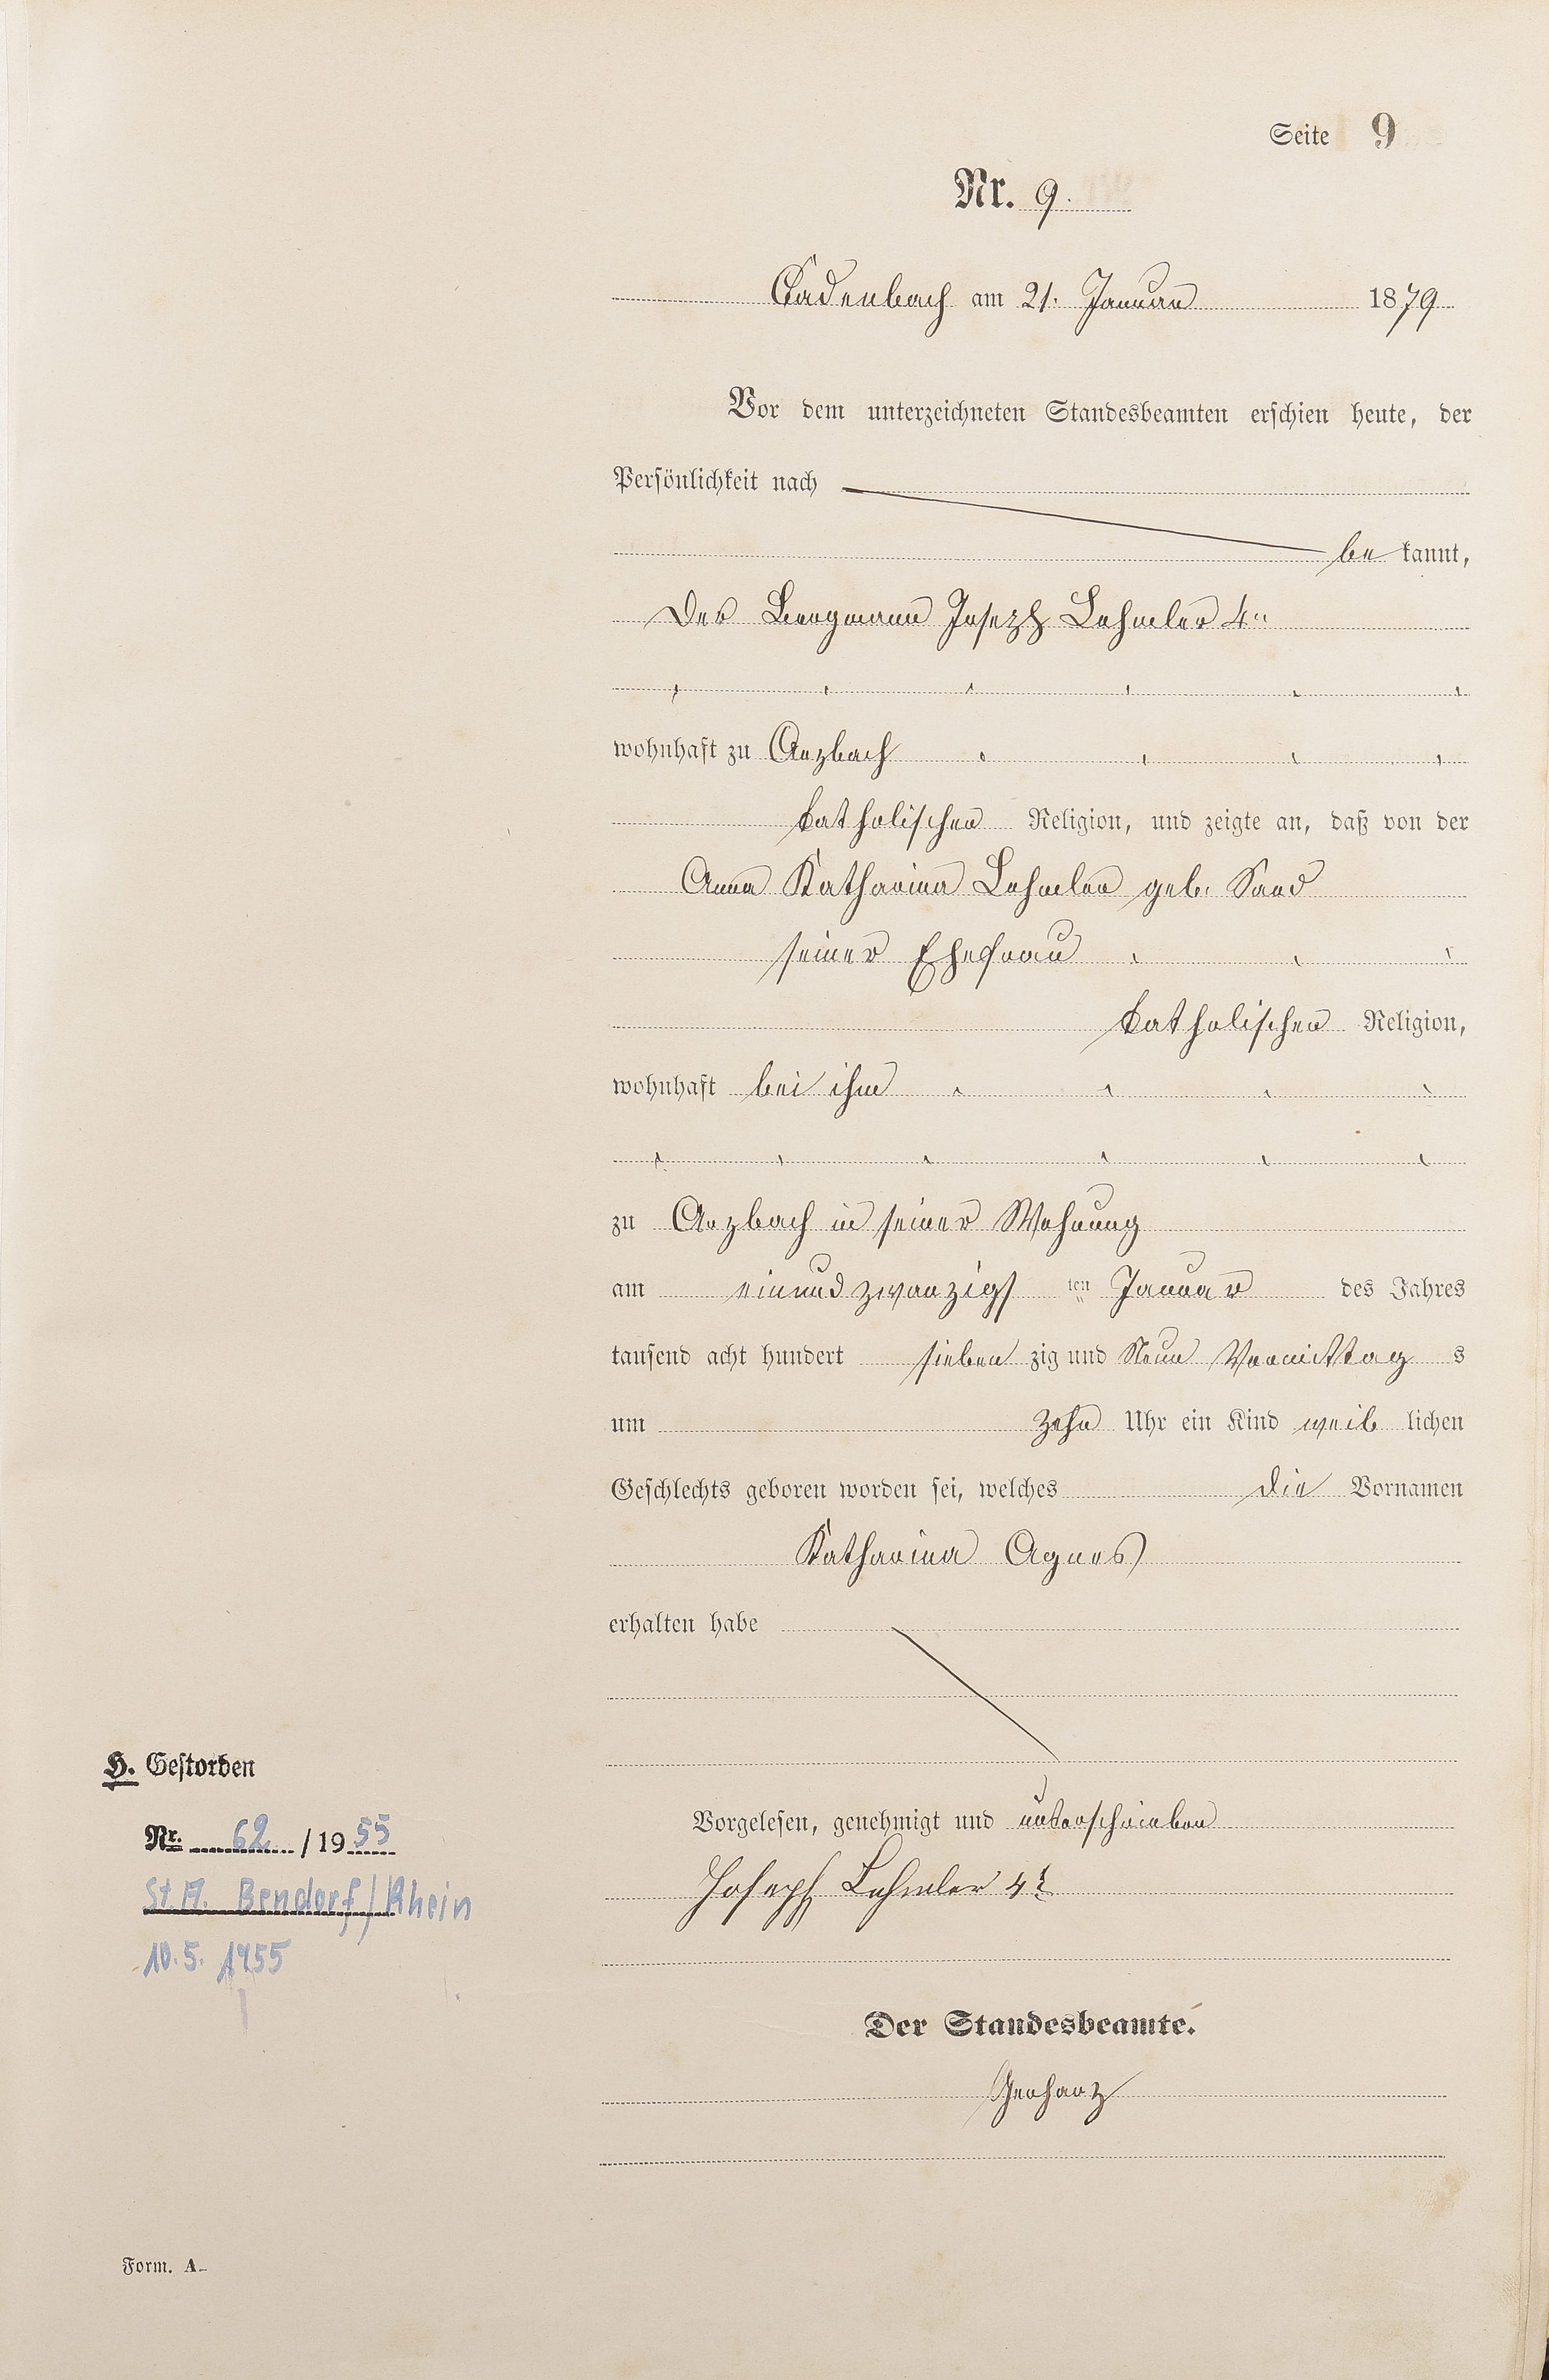 Seite 9
Nr. 9.
Cadenbach am 21. Januar 1879
Vor dem unterzeichneten Standesbeamten erschien heute, der
Persönlichkeit nach
be kannt,
Der Bergmann Joseph Lehmler 4r
wohnhaft zu Arzbach
katholischer Religion, und zeigte an, daß von der
Anna Katharina Lehmler geb. Sand
seiner Ehefrau
katholischer Religion,
wohnhaft bei ihm
zu Arzbach in seiner Wohnung
am einund zwanzigs ten Januar des Jahres
tausend acht hundert sieben zig und Neun Vormittag s
um Zehn Uhr ein Kind weib lichen
Geschlechts geboren worden sei, welches die Vornamen
Katharina Agnes
erhalten habe
Vorgelesen, genehmigt und unterschrieben
Joseph Lehmler 4t
Der Standesbeamte.
Gerharz
H. Gestorben
Nr. 62 / 19 55
St. A. Bendorf / Rhein
10. 5. 1955
Form. A.